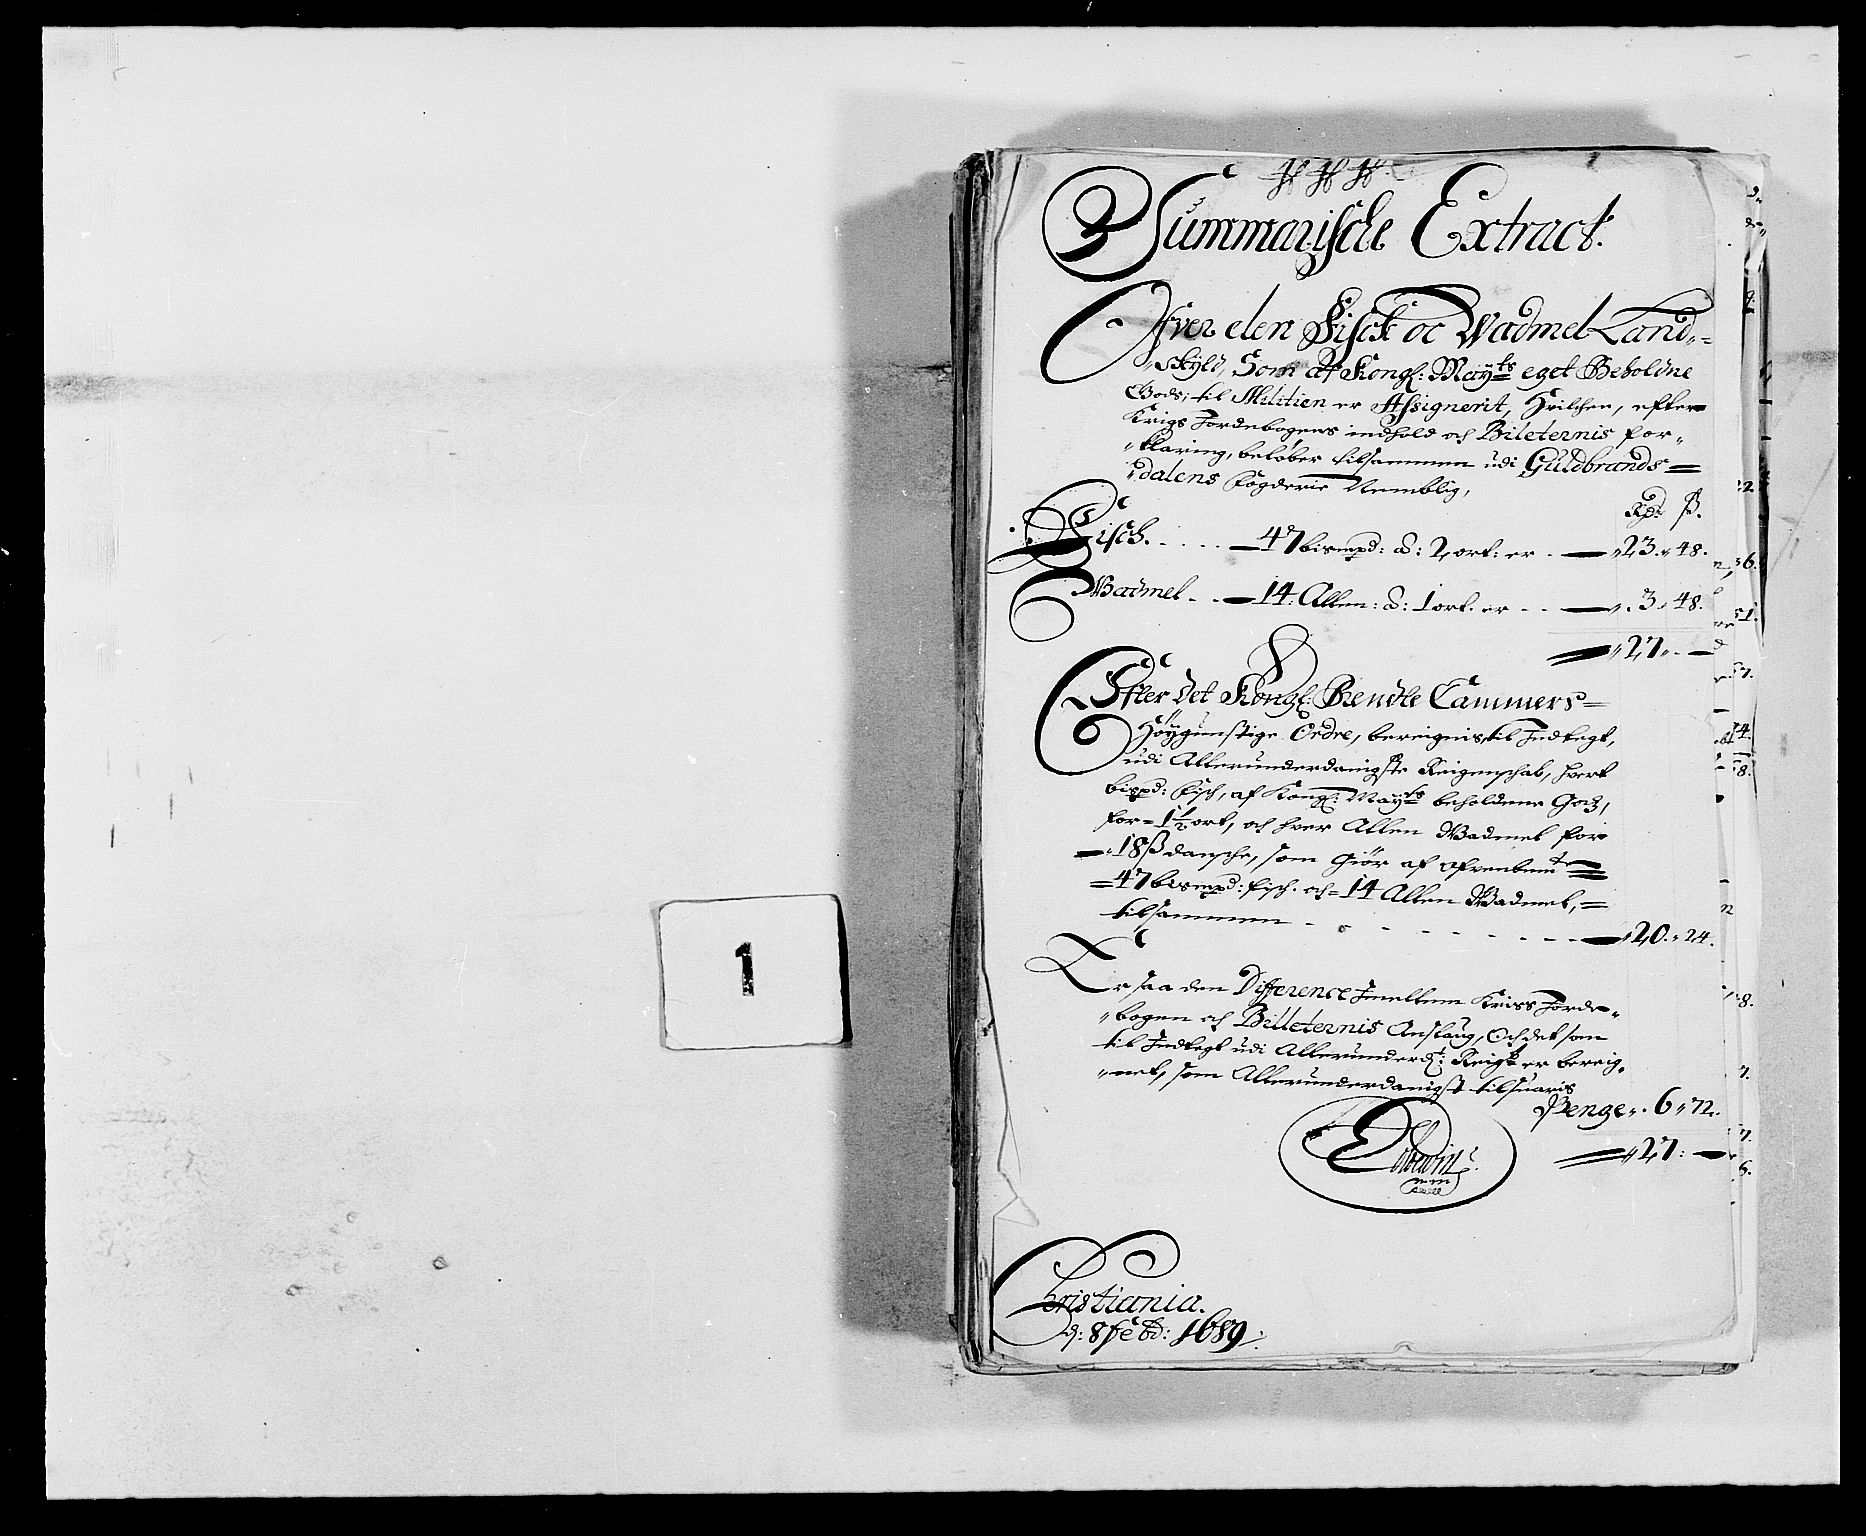 Summarische Extract.
Ofver den Fisck oc Wadmel Land-
skyld, Som af Kongl: Mayts eget Beholdne
Gods, til Militien er Assignerit, Hvilchen, efter
Krigs Jordebogens indhold och Bileternis for-
klaring, beløber tilsammen udi Guldbrands=
dalens fogderie Nemblig,
Rdr ß.
Fisch. 47 bismpd: a: 2 ort: er 23. 48.
Wadmel 14. Allen: a: 1 ort. er 3. 48.
27
Efter det Kongl: Rendte Cammers=
Høygunstige Ordre, bereignis til Indtegt,
udi Allerunderdanigste Reigenschab, hvert
bispd: fisch, af Kongl: Mayts beholdene Godz,
for 1½ ort, och hver Allen Wadmel for
18 ß dansche, som giør af ofvenbemte
47 bismpd: fisch. och 14 Allen Wadmel,
tilsammen 20. 24.
Er saa den Difference Imellem Krigs Jorde-
bogen och Billeternis Anslaug, Och det som
til Indtegt udi Allerunderdt: Reigsk er bereig-
net, som Allerunderdanigst tilsvaris
Penge 6 72.
27:
Christiania.
d: 8 feb: 1689.
1